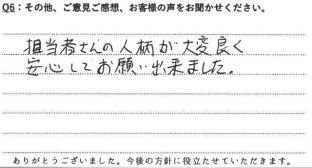 Q6：その他、ご意見ご感想、お客様の声をお聞かせください。
担当者さんの人柄が大変良く
安心してお願い出来ました。
ありがとうございました。今後の方針に役立たせていただきます。